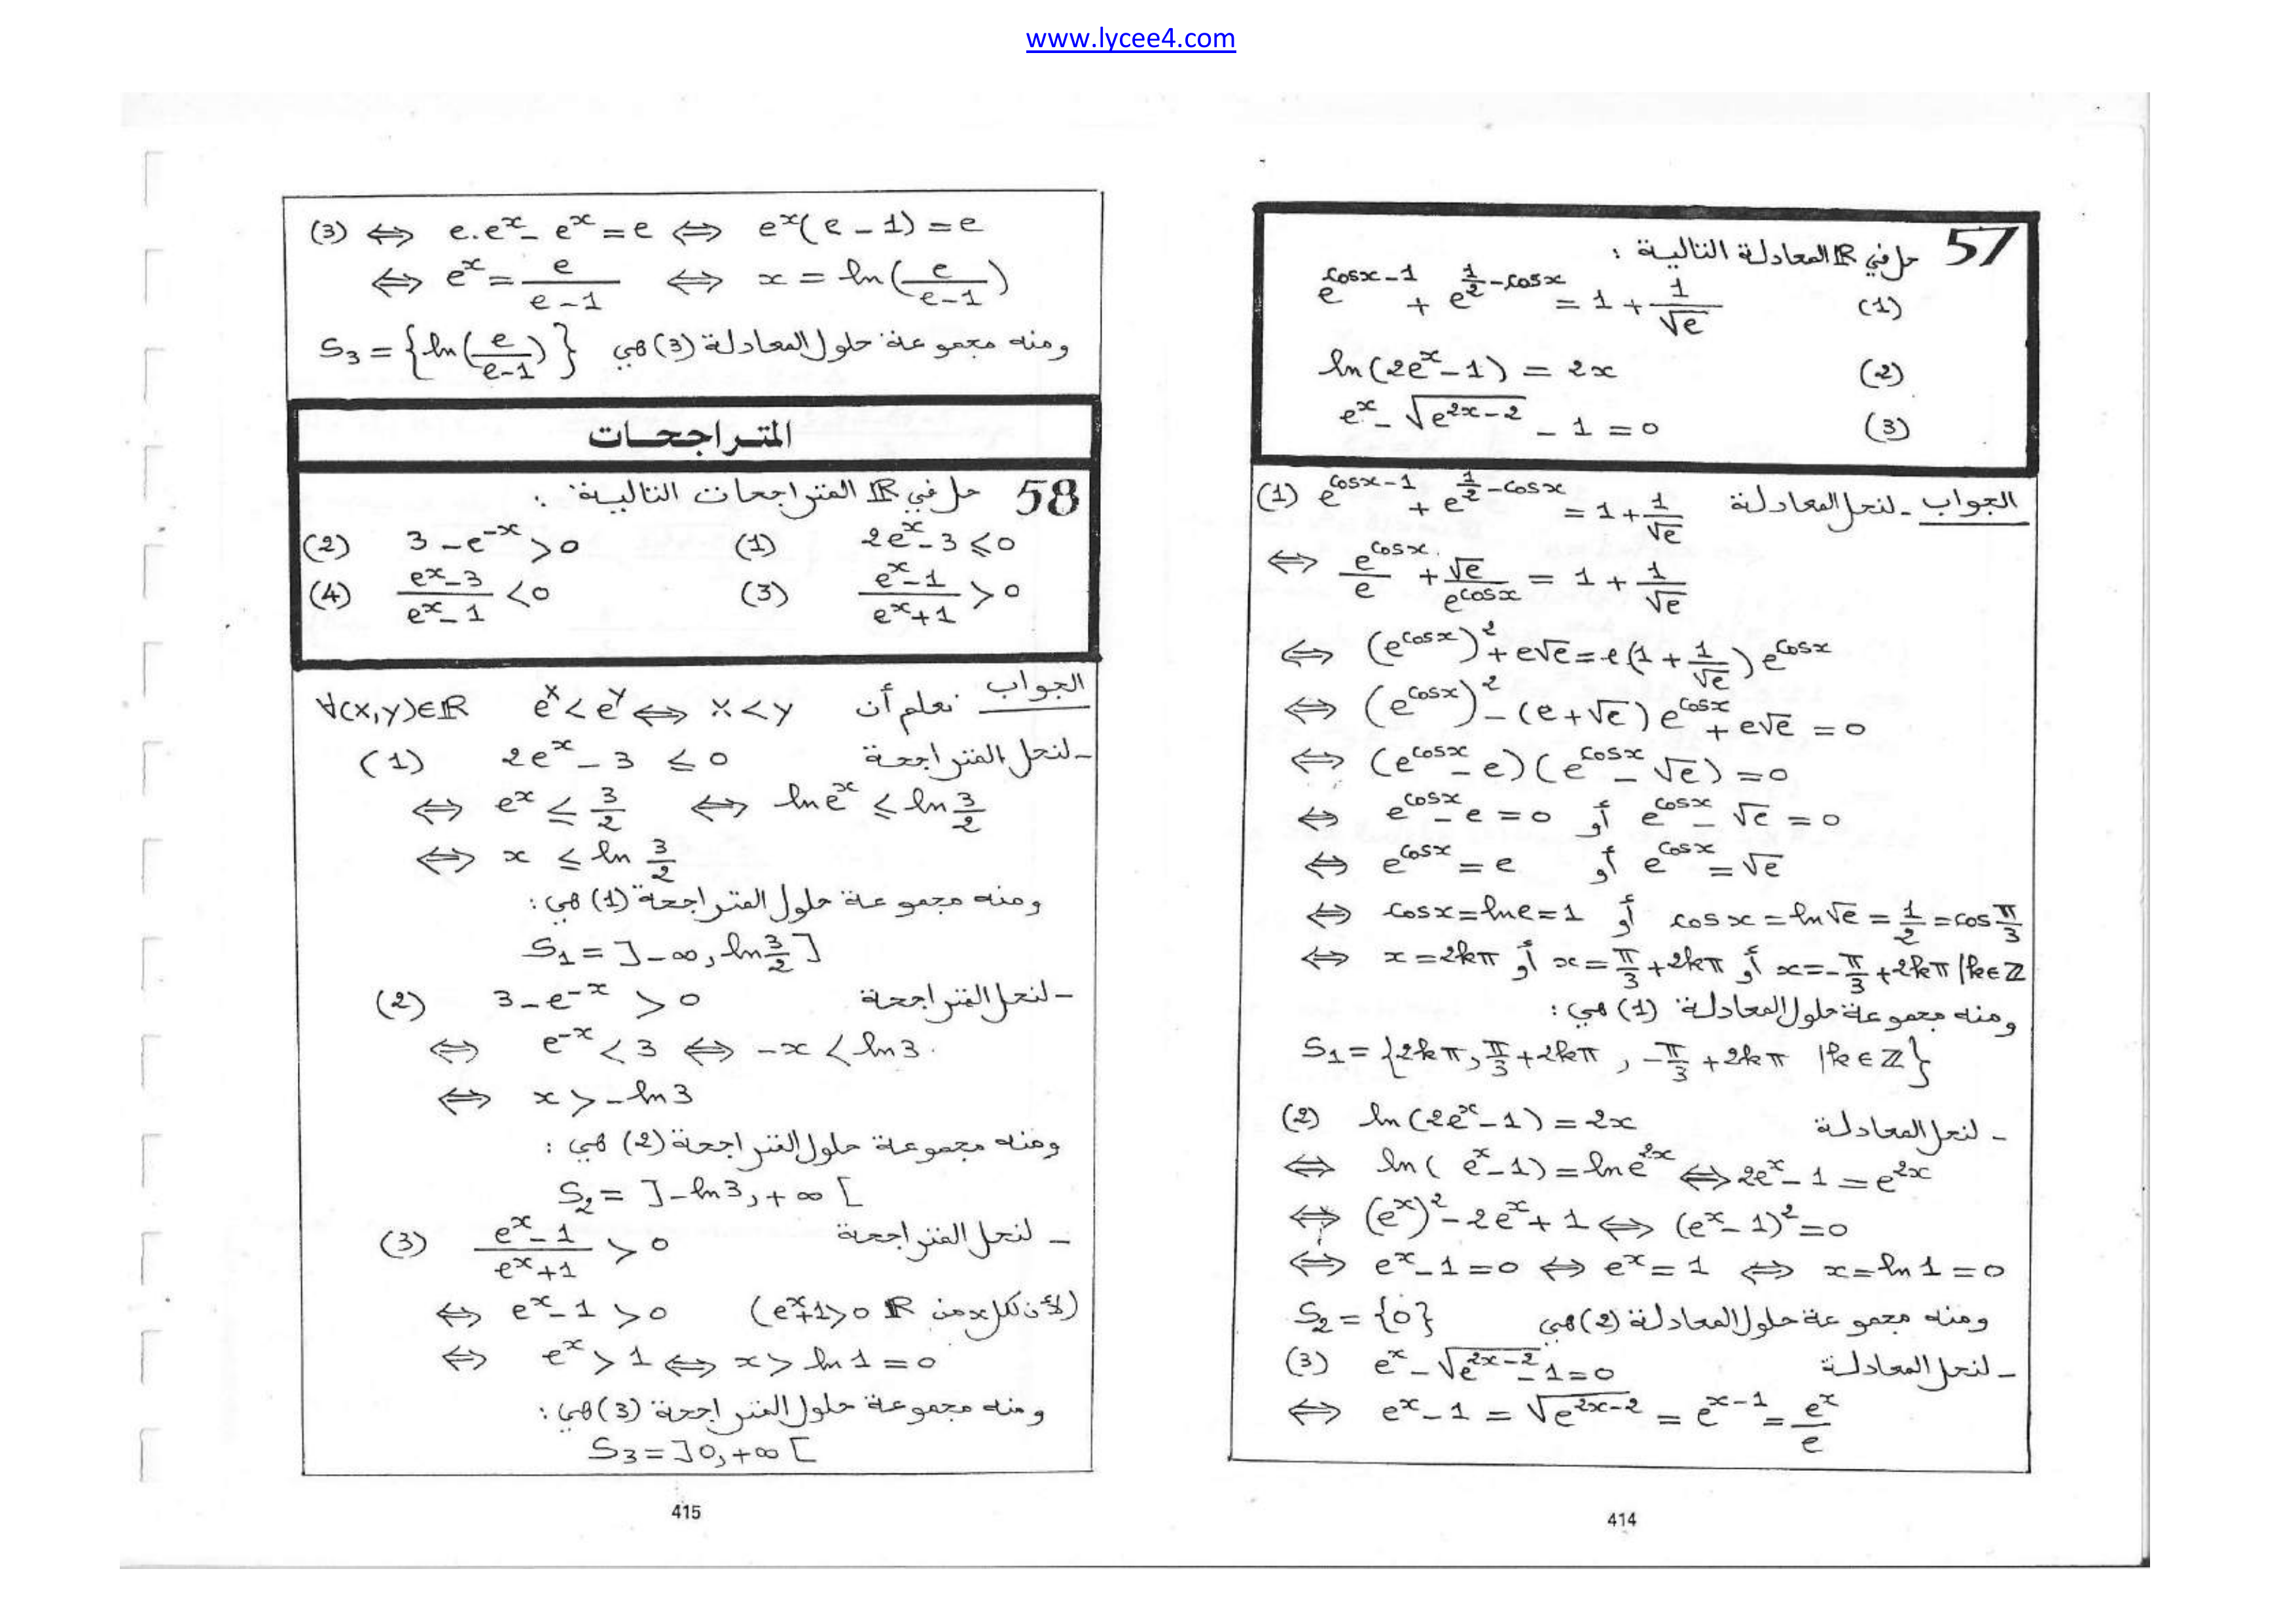 www.lycee4.com
57 حل في ℝ المعادلة التالية :
e^(cosx-1) + e^(1/2-cosx) = 1 + 1/√e (1)
ln(2e^x - 1) = 2x (2)
e^x - √(e^(2x-2)) - 1 = 0 (3)
الجواب - لنحل المعادلة (1) e^(cosx-1) + e^(1/2-cosx) = 1 + 1/√e
⇔ e^cosx/e + √e/e^cosx = 1 + 1/√e
⇔ (e^cosx)² + e√e = e(1 + 1/√e) e^cosx
⇔ (e^cosx)² - (e + √e) e^cosx + e√e = 0
⇔ (e^cosx - e)(e^cosx - √e) = 0
⇔ e^cosx - e = 0 أو e^cosx - √e = 0
⇔ e^cosx = e أو e^cosx = √e
⇔ cosx = lne = 1 أو cosx = ln√e = 1/2 = cos π/3
⇔ x = 2kπ أو x = π/3 + 2kπ أو x = -π/3 + 2kπ | k∈ℤ
ومنه مجموعة حلول المعادلة (1) هي :
S₁ = {2kπ, π/3 + 2kπ, -π/3 + 2kπ | k∈ℤ}
- لنحل المعادلة (2) ln(2e^x - 1) = 2x
⇔ ln( e^x - 1) = ln e^2x ⇔ 2e^x - 1 = e^2x
⇔ (e^x)² - 2e^x + 1 ⇔ (e^x - 1)² = 0
⇔ e^x - 1 = 0 ⇔ e^x = 1 ⇔ x = ln1 = 0
ومنه مجموعة حلول المعادلة (2) هي S₂ = {0}
- لنحل المعادلة (3) e^x - √(e^(2x-2)) - 1 = 0
⇔ e^x - 1 = √(e^(2x-2)) = e^(x-1) = e^x/e
414
(3) ⇔ e.e^x - e^x = e ⇔ e^x(e - 1) = e
⇔ e^x = e/(e-1) ⇔ x = ln(e/(e-1))
ومنه مجموعة حلول المعادلة (3) هي S₃ = {ln(e/(e-1))}
المتراجحات
58 حل في ℝ المتراجحات التالية :
(1) 2e^x - 3 ≤ 0 (2) 3 - e^-x > 0
(3) (e^x - 1)/(e^x + 1) > 0 (4) (e^x - 3)/(e^x - 1) < 0
الجواب نعلم أن ∀(x,y)∈ℝ e^x < e^y ⇔ x < y
- لنحل المتراجحة (1) 2e^x - 3 ≤ 0
⇔ e^x ≤ 3/2 ⇔ ln e^x ≤ ln 3/2
⇔ x ≤ ln 3/2
ومنه مجموعة حلول المتراجحة (1) هي :
S₁ = ]-∞, ln 3/2]
- لنحل المتراجحة (2) 3 - e^-x > 0
⇔ e^-x < 3 ⇔ -x < ln3.
⇔ x > -ln3
ومنه مجموعة حلول المتراجحة (2) هي :
S₂ = ]-ln3, +∞[
- لنحل المتراجحة (3) (e^x - 1)/(e^x + 1) > 0
⇔ e^x - 1 > 0 (لأن لكل x من ℝ e^x + 1 > 0)
⇔ e^x > 1 ⇔ x > ln1 = 0
ومنه مجموعة حلول المتراجحة (3) هي :
S₃ = ]0, +∞[
415